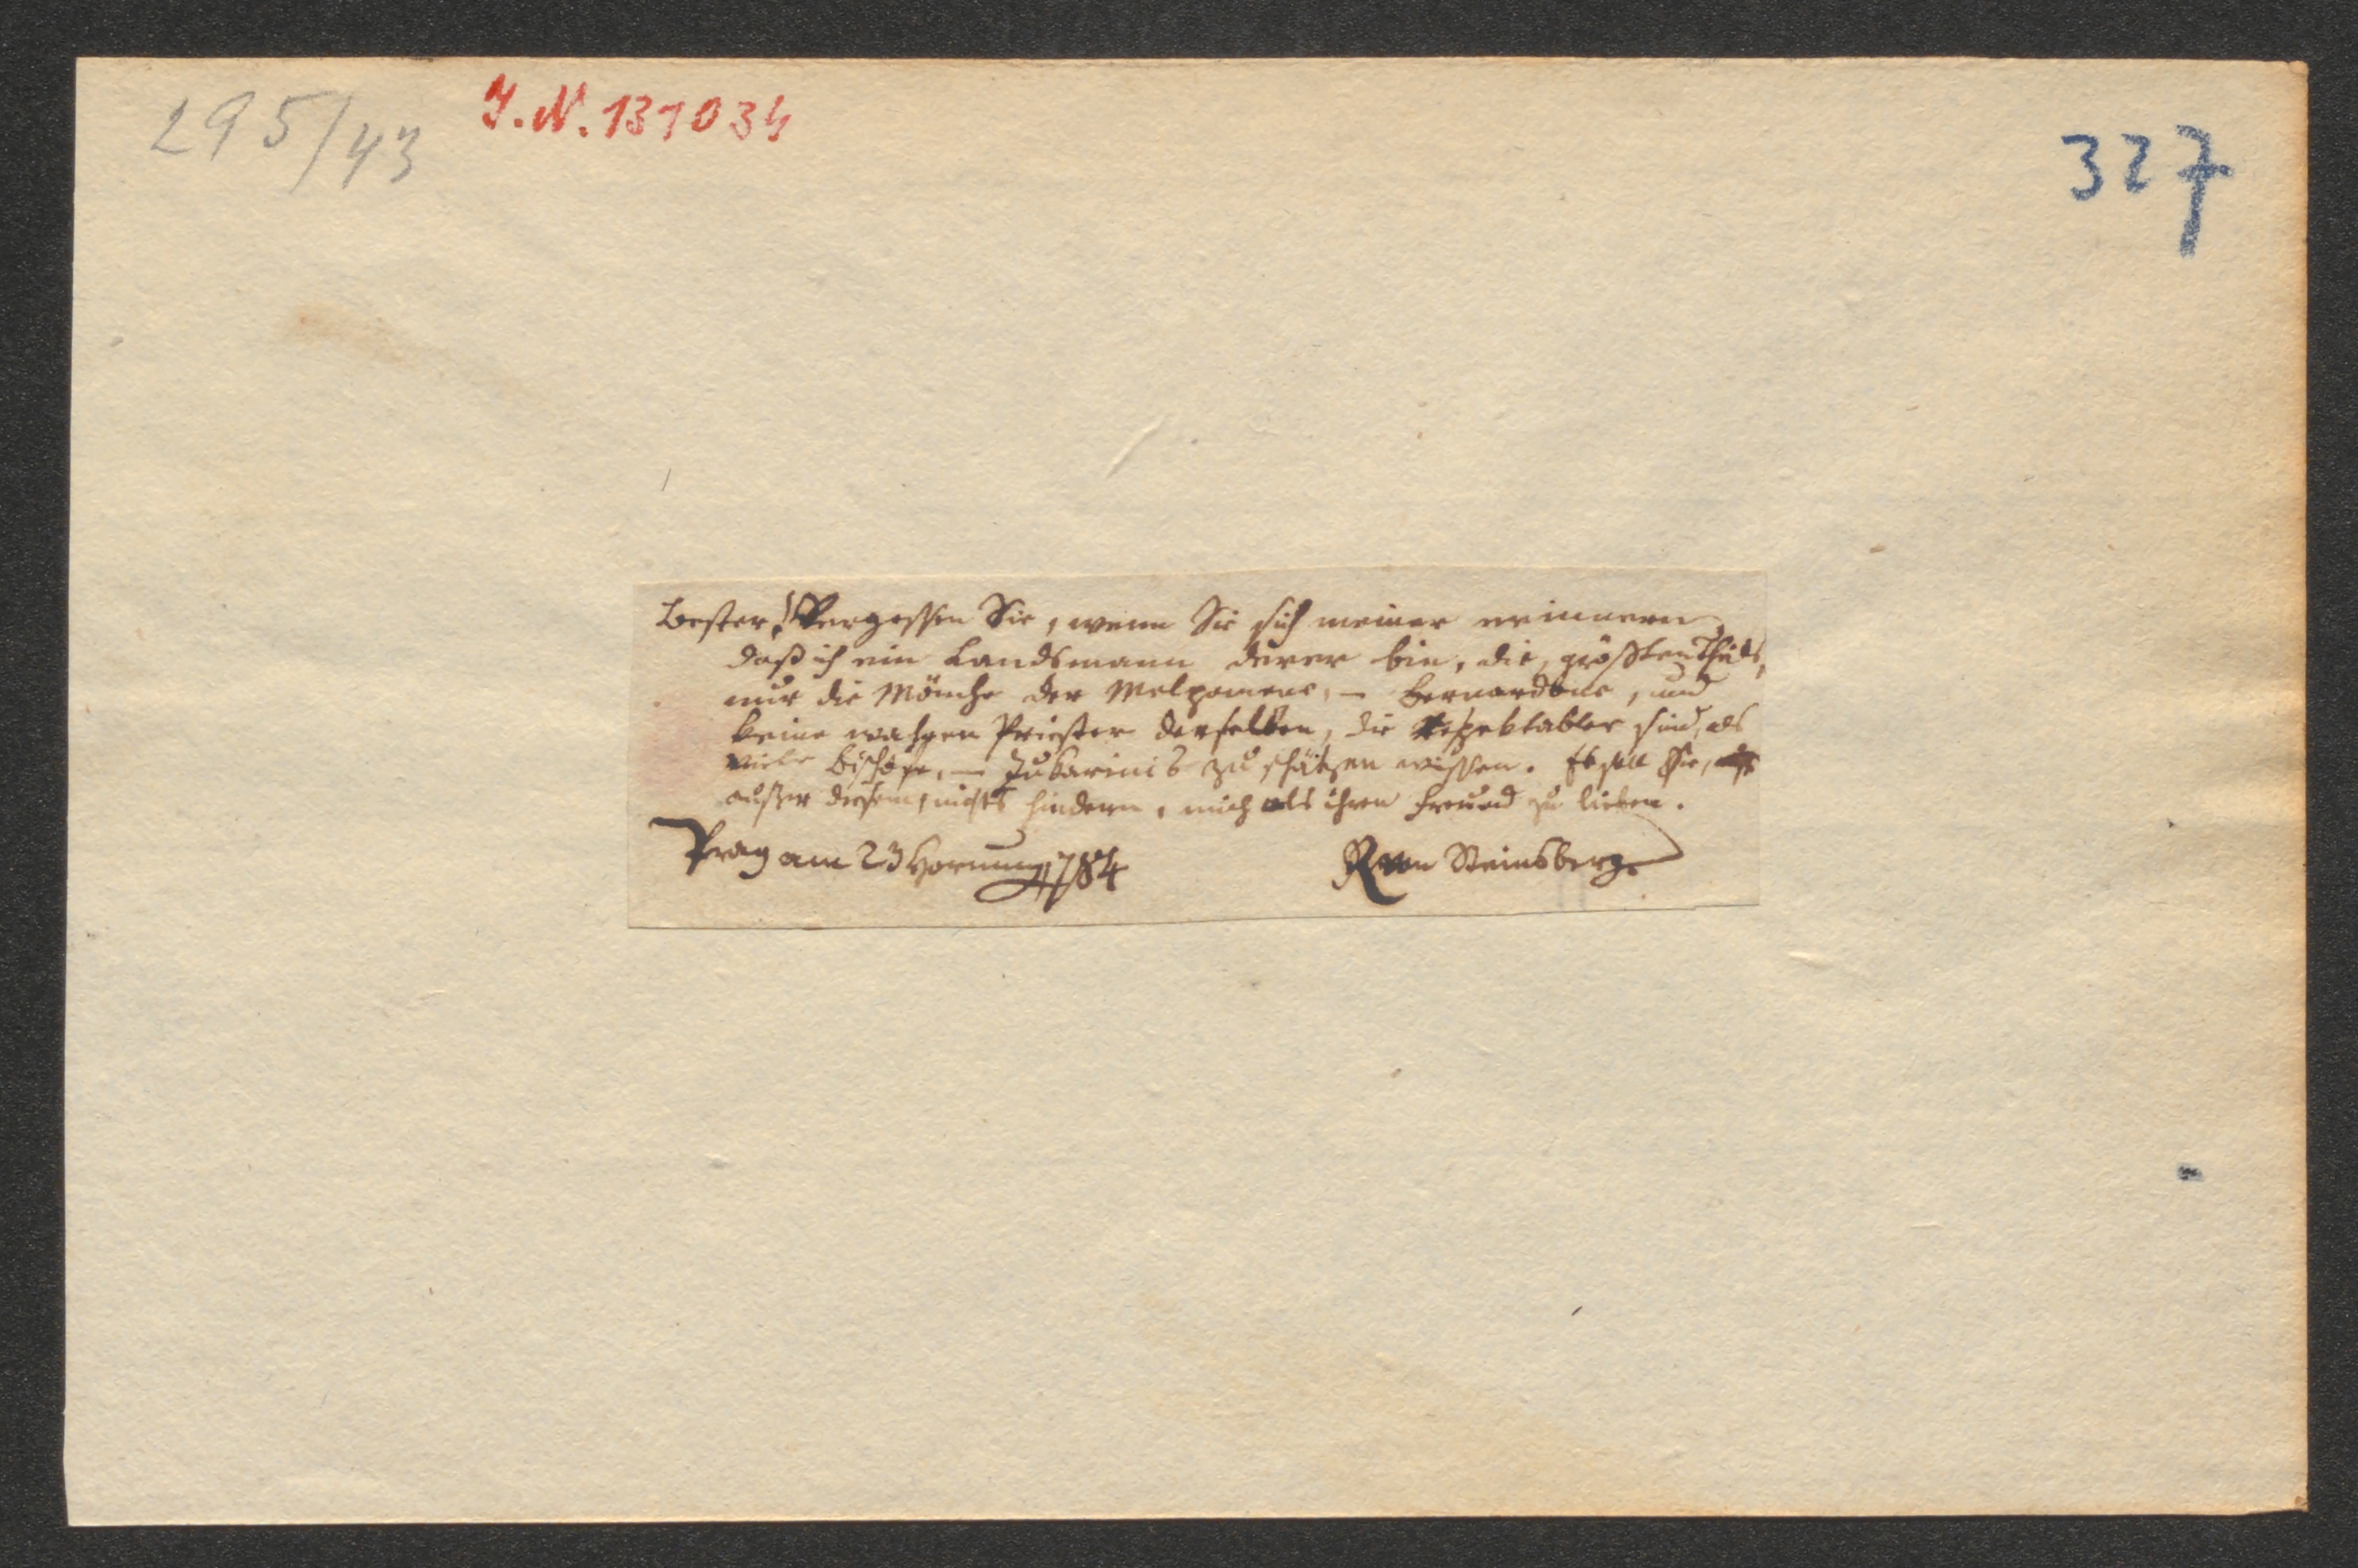 295/43
I.N. 131034
327
Bester! Vergessen Sie, wenn Sie sich meiner erinnern,
daß ich ein Landsmann derer bin, die, größtentheils,
nur die Mönche der Melpomene, – Bernardone, und
keine wahren Priester derselben, die respektabler sind, als
viele Bischöfe, – Zukarinis zu schätzen wissen. Es soll Sie,
außer diesem, nichts hindern, mich als ihren Freund zu lieben.
Prag am 23 Hornung 1784
R von Steinsberg